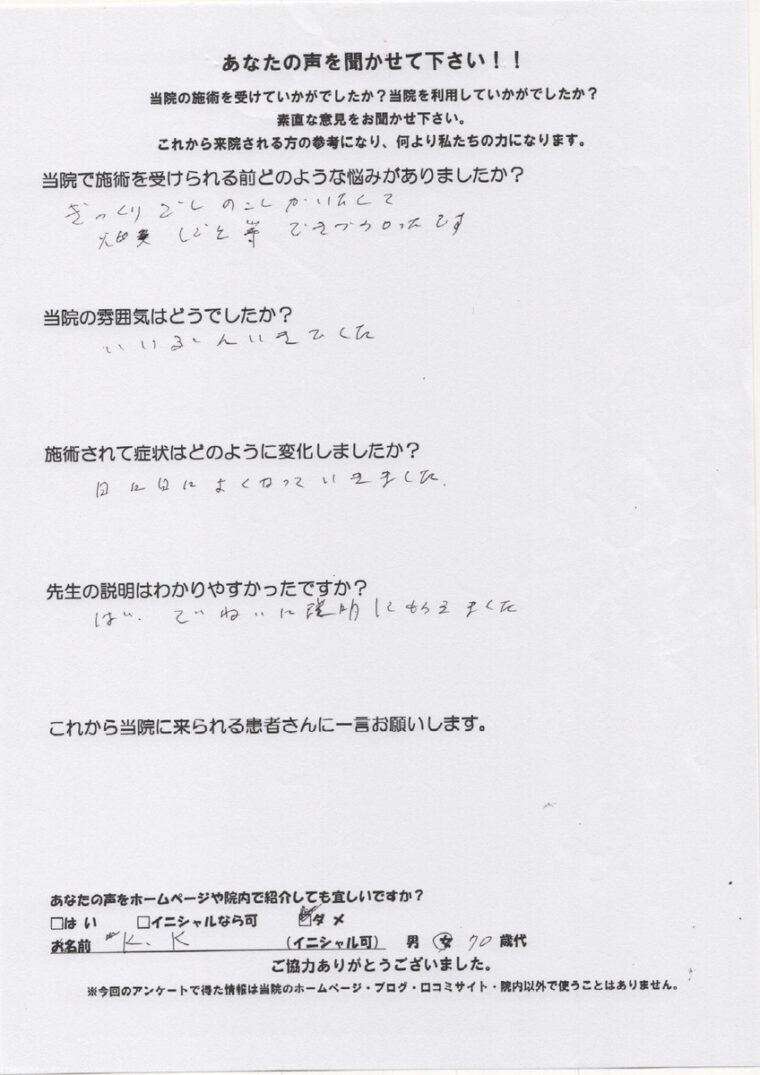 あなたの声を聞かせて下さい！！
当院の施術を受けていかがでしたか？当院を利用していかがでしたか？
素直な意見をお聞かせ下さい。
これから来院される方の参考になり、何より私たちの力になります。
当院で施術を受けられる前どのような悩みがありましたか？
ぎっくりごしのこしがいたくて
しごと等 できづらかったです
当院の雰囲気はどうでしたか？
いいふんいきでした
施術されて症状はどのように変化しましたか？
日に日によくなっていきました。
先生の説明はわかりやすかったですか？
はい。ていねいに説明してもらえました
これから当院に来られる患者さんに一言お願いします。
あなたの声をホームページや院内で紹介しても宜しいですか？
□はい □イニシャルなら可 ☑ダメ
お名前 K.K （イニシャル可） 男 女 70 歳代
ご協力ありがとうございました。
※今回のアンケートで得た情報は当院のホームページ・ブログ・口コミサイト・院内以外で使うことはありません。